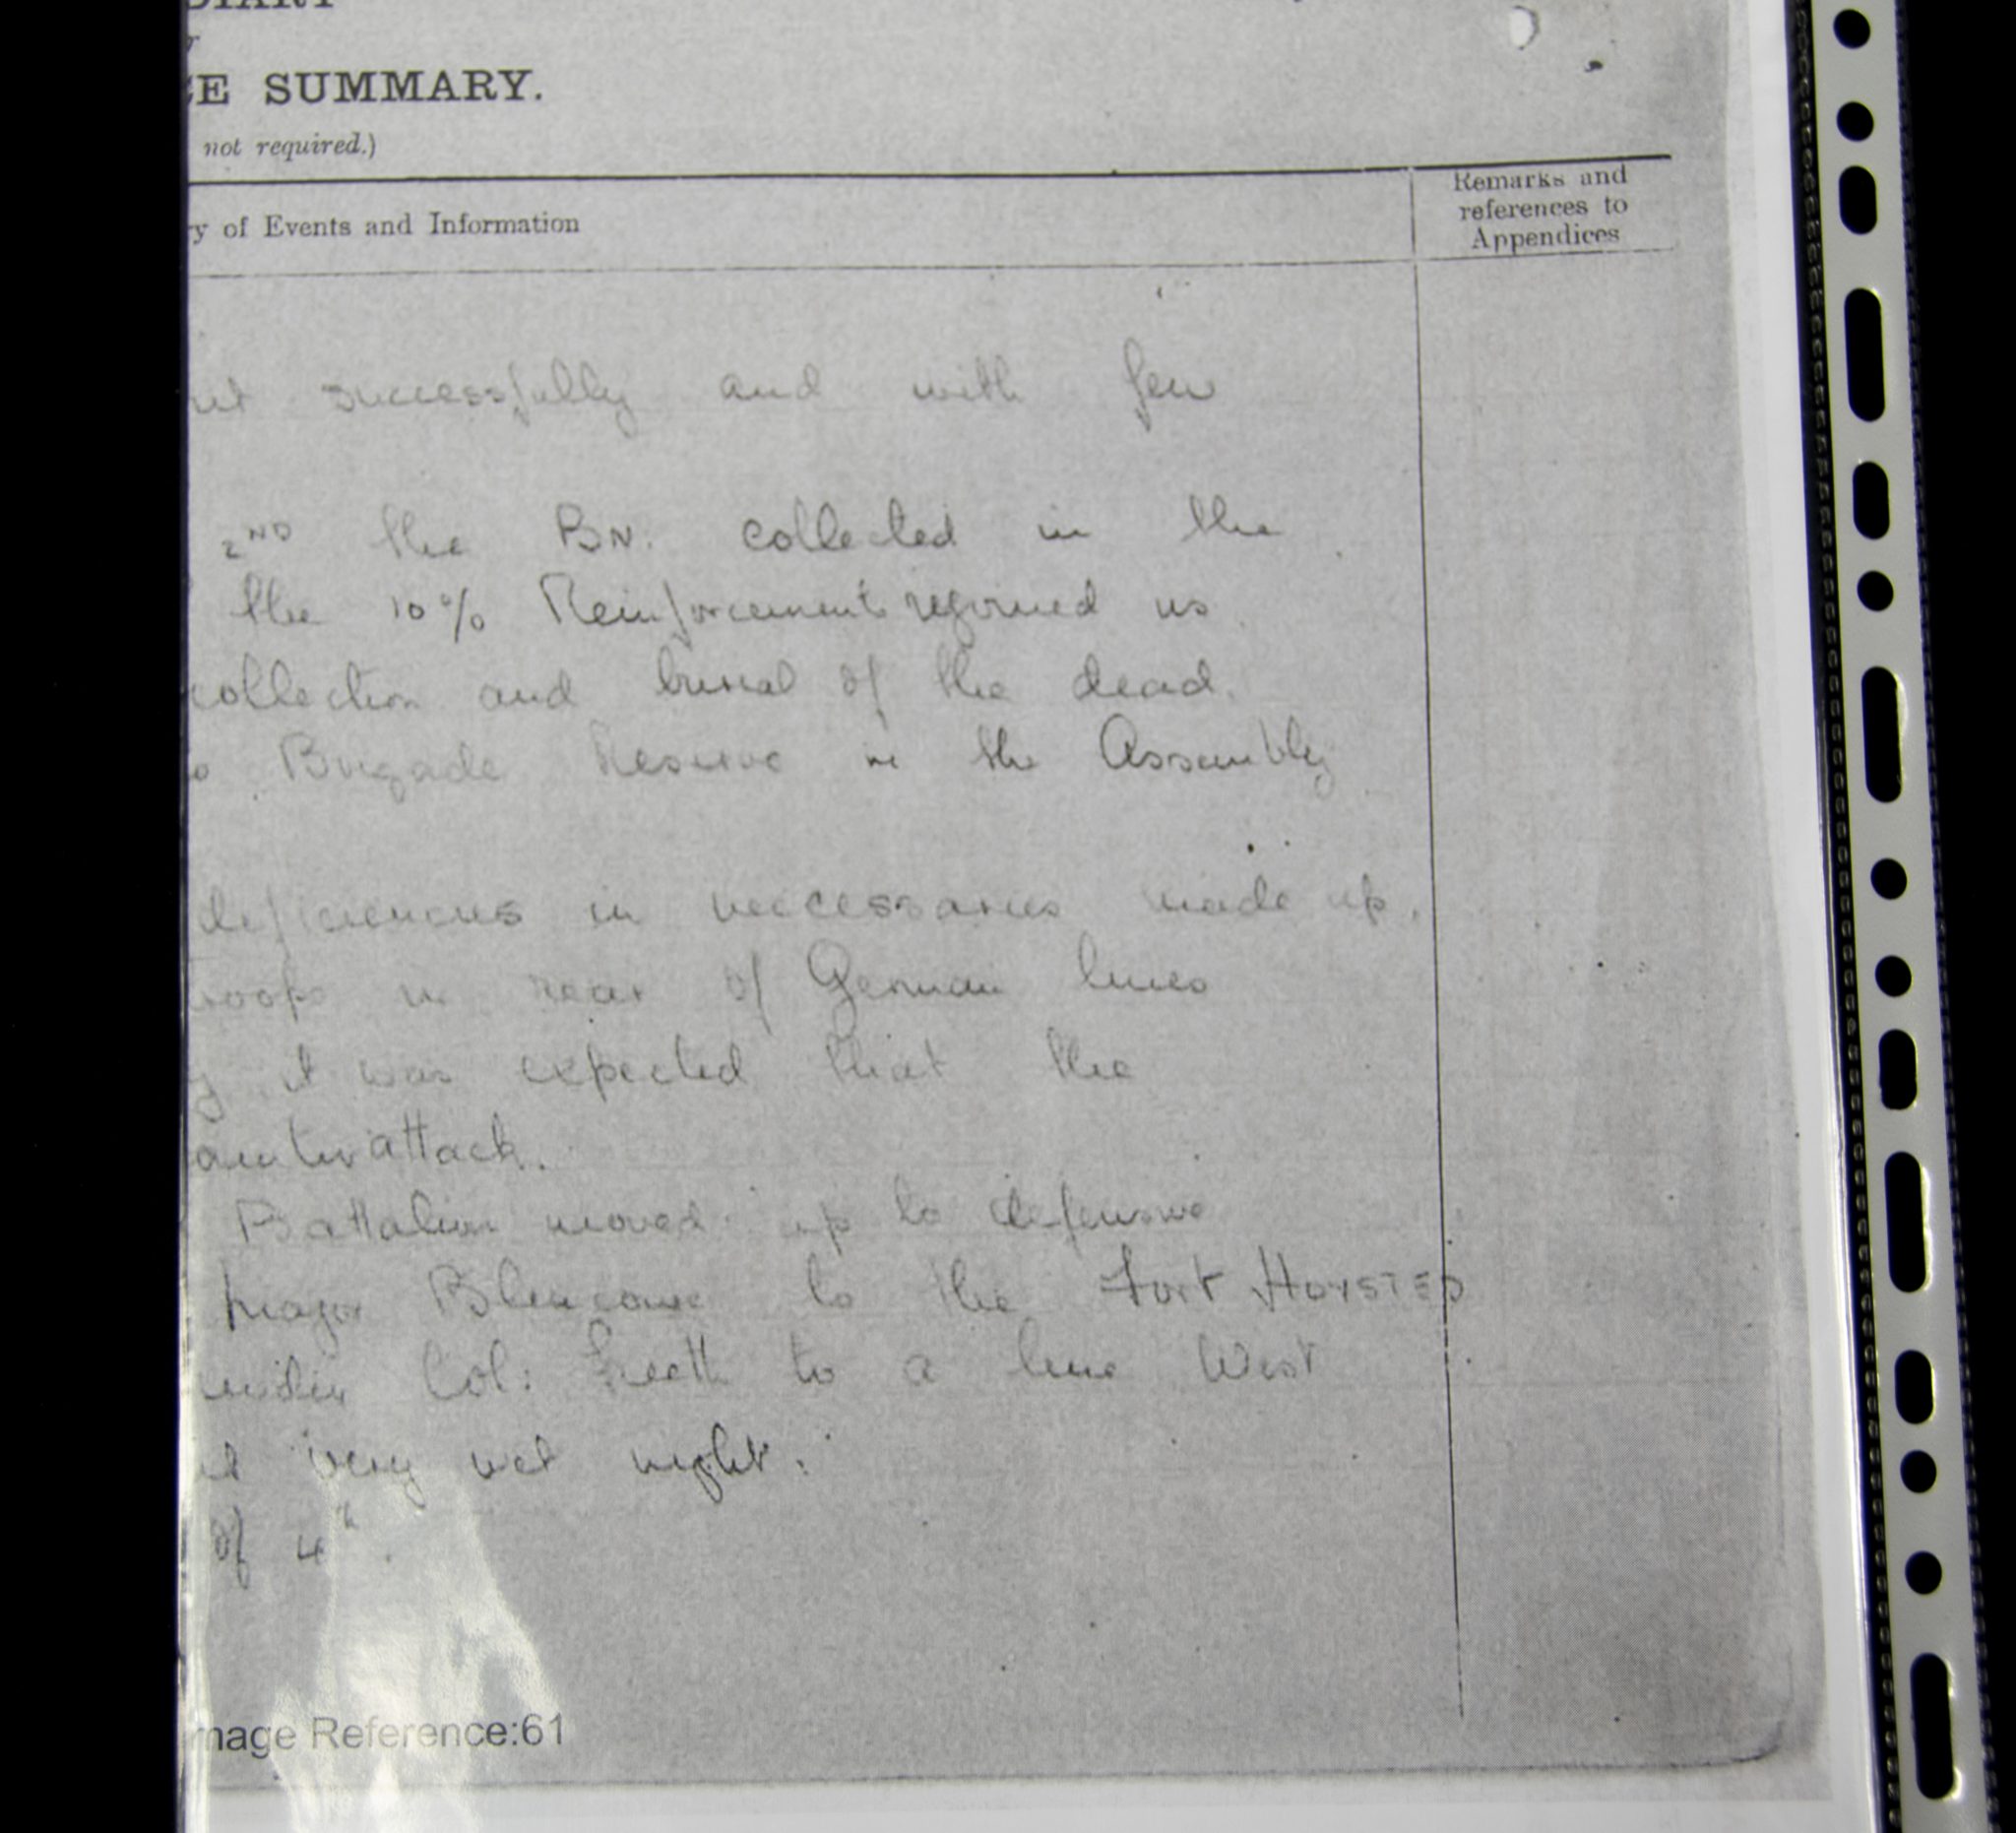 DIARY
CE SUMMARY.
not required.)
y of Events and Information
Remarks and
references to
Appendices
successfully and with few
2ND the BN. collected in the
the 10% Reinforcements rejoined us
collection and burial of the dead.
Brigade Reserve in the Assembly
deficiencies in neccessaries made up.
troops in rear of German lines
it was expected that the
ounter attack.
Battalion moved up to defensive
Major Blencowe to the Fort HORSTED
under Col: to a line West
very wet night.
of 4th.
mage Reference:61